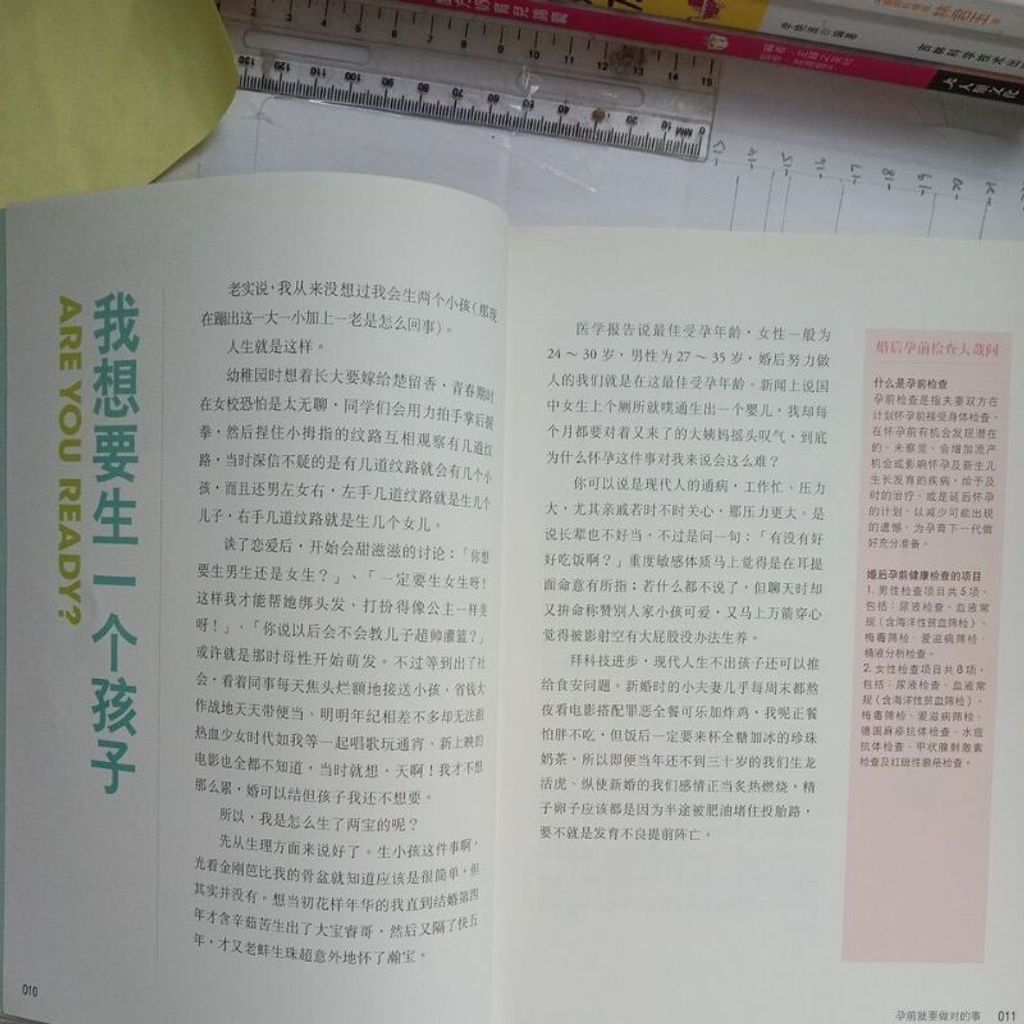 我想要生一个孩子
ARE YOU READY?
老实说，我从来没想过我会生两个小孩（那现
在蹦出这一大一小加上一老是怎么回事）。
人生就是这样。
幼稚园时想着长大要嫁给楚留香，青春期时
在女校恐怕是太无聊，同学们会用力拍手掌后握
拳，然后捏住小拇指的纹路互相观察有几道纹
路，当时深信不疑的是有几道纹路就会有几个小
孩，而且还男左女右，左手几道纹路就是生几个
儿子，右手几道纹路就是生几个女儿。
谈了恋爱后，开始会甜滋滋的讨论：「你想
要生男生还是女生？」、「一定要生女生呀！
这样我才能帮她绑头发、打扮得像公主一样美
呀！」、「你说以后会不会教儿子超帅灌篮？」
或许就是那时母性开始萌发。不过等到出了社
会，看着同事每天焦头烂额地接送小孩、省钱大
作战地天天带便当、明明年纪相差不多却无法跟
热血少女时代如我等一起唱歌玩通宵、新上映的
电影也全都不知道，当时就想，天啊！我才不想
那么累，婚可以结但孩子我还不想要。
所以，我是怎么生了两宝的呢？
先从生理方面来说好了。生小孩这件事啊，
光看金刚芭比我的骨盆就知道应该是很简单，但
其实并没有。想当初花样年华的我直到结婚第四
年才含辛茹苦生出了大宝睿哥，然后又隔了快五
年，才又老蚌生珠超意外地怀了瀚宝。
010
医学报告说最佳受孕年龄，女性一般为
24～30岁，男性为27～35岁，婚后努力做
人的我们就是在这最佳受孕年龄。新闻上说国
中女生上个厕所就噗通生出一个婴儿，我却每
个月都要对着又来了的大姨妈摇头叹气，到底
为什么怀孕这件事对我来说会这么难？
你可以说是现代人的通病，工作忙、压力
大，尤其亲戚若时不时关心，那压力更大。是
说长辈也不好当，不过是问一句：「有没有好
好吃饭啊？」重度敏感体质马上觉得是在耳提
面命意有所指；若什么都不说了，但聊天时却
又拼命称赞别人家小孩可爱，又马上万箭穿心
觉得被影射空有大屁股没办法生养。
拜科技进步，现代人生不出孩子还可以推
给食安问题。新婚时的小夫妻几乎每周末都熬
夜看电影搭配罪恶全餐可乐加炸鸡，我呢正餐
怕胖不吃，但饭后一定要来杯全糖加冰的珍珠
奶茶，所以即便当年还不到三十岁的我们生龙
活虎、纵使新婚的我们感情正当炙热燃烧，精
子卵子应该都是因为半途被肥油堵住投胎路，
要不就是发育不良提前阵亡。
婚后孕前检查大哉问
什么是孕前检查
孕前检查是指夫妻双方在
计划怀孕前接受身体检查，
在怀孕前有机会发现潜在
的、未察觉、会增加流产
机会或影响怀孕及新生儿
生长发育的疾病，给予及
时的治疗，或是延后怀孕
的计划，以减少可能出现
的遗憾，为孕育下一代做
好充分准备。
婚后孕前健康检查的项目
1. 男性检查项目共5项，
包括：尿液检查、血液常
规（含海洋性贫血筛检）、
梅毒筛检、爱滋病筛检、
精液分析检查。
2. 女性检查项目共8项，
包括：尿液检查、血液常
规（含海洋性贫血筛检）、
梅毒筛检、爱滋病筛检、
德国麻疹抗体检查、水痘
抗体检查、甲状腺刺激素
检查及红斑性狼疮检查。
孕前就要做对的事 011